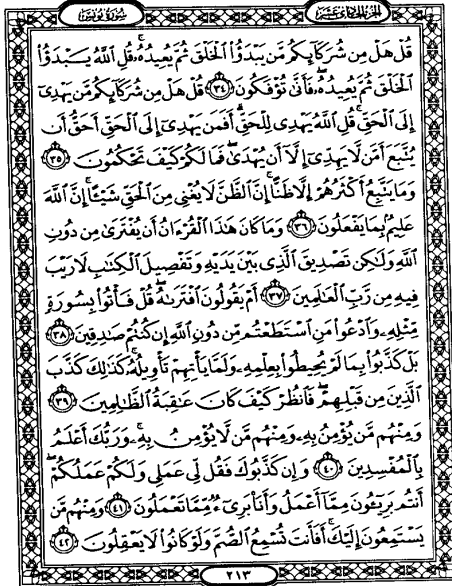 سُورَةُ يُونُسَ
الجزء الحادي عشر
قُلْ هَلْ مِن شُرَكَآئِكُم مَّن يَبْدَؤُاْ ٱلْخَلْقَ ثُمَّ يُعِيدُهُۥ ۚ قُلِ ٱللَّهُ يَبْدَؤُاْ
ٱلْخَلْقَ ثُمَّ يُعِيدُهُۥ ۖ فَأَنَّىٰ تُؤْفَكُونَ ٣٤ قُلْ هَلْ مِن شُرَكَآئِكُم مَّن يَهْدِىٓ
إِلَى ٱلْحَقِّ ۚ قُلِ ٱللَّهُ يَهْدِى لِلْحَقِّ ۗ أَفَمَن يَهْدِىٓ إِلَى ٱلْحَقِّ أَحَقُّ أَن
يُتَّبَعَ أَمَّن لَّا يَهِدِّىٓ إِلَّآ أَن يُهْدَىٰ ۖ فَمَا لَكُمْ كَيْفَ تَحْكُمُونَ ٣٥
وَمَا يَتَّبِعُ أَكْثَرُهُمْ إِلَّا ظَنًّا ۚ إِنَّ ٱلظَّنَّ لَا يُغْنِى مِنَ ٱلْحَقِّ شَيْـًٔا ۚ إِنَّ ٱللَّهَ
عَلِيمٌۢ بِمَا يَفْعَلُونَ ٣٦ وَمَا كَانَ هَٰذَا ٱلْقُرْءَانُ أَن يُفْتَرَىٰ مِن دُونِ
ٱللَّهِ وَلَٰكِن تَصْدِيقَ ٱلَّذِى بَيْنَ يَدَيْهِ وَتَفْصِيلَ ٱلْكِتَٰبِ لَا رَيْبَ
فِيهِ مِن رَّبِّ ٱلْعَٰلَمِينَ ٣٧ أَمْ يَقُولُونَ ٱفْتَرَىٰهُ ۖ قُلْ فَأْتُواْ بِسُورَةٍ
مِّثْلِهِۦ وَٱدْعُواْ مَنِ ٱسْتَطَعْتُم مِّن دُونِ ٱللَّهِ إِن كُنتُمْ صَٰدِقِينَ ٣٨
بَلْ كَذَّبُواْ بِمَا لَمْ يُحِيطُواْ بِعِلْمِهِۦ وَلَمَّا يَأْتِهِمْ تَأْوِيلُهُۥ ۚ كَذَٰلِكَ كَذَّبَ
ٱلَّذِينَ مِن قَبْلِهِمْ ۖ فَٱنظُرْ كَيْفَ كَانَ عَٰقِبَةُ ٱلظَّٰلِمِينَ ٣٩
وَمِنْهُم مَّن يُؤْمِنُ بِهِۦ وَمِنْهُم مَّن لَّا يُؤْمِنُ بِهِۦ ۚ وَرَبُّكَ أَعْلَمُ
بِٱلْمُفْسِدِينَ ٤٠ وَإِن كَذَّبُوكَ فَقُل لِّى عَمَلِى وَلَكُمْ عَمَلُكُمْ ۖ
أَنتُم بَرِيٓـُٔونَ مِمَّآ أَعْمَلُ وَأَنَا۠ بَرِىٓءٌ مِّمَّا تَعْمَلُونَ ٤١ وَمِنْهُم مَّن
يَسْتَمِعُونَ إِلَيْكَ ۚ أَفَأَنتَ تُسْمِعُ ٱلصُّمَّ وَلَوْ كَانُواْ لَا يَعْقِلُونَ ٤٢
٢١٣